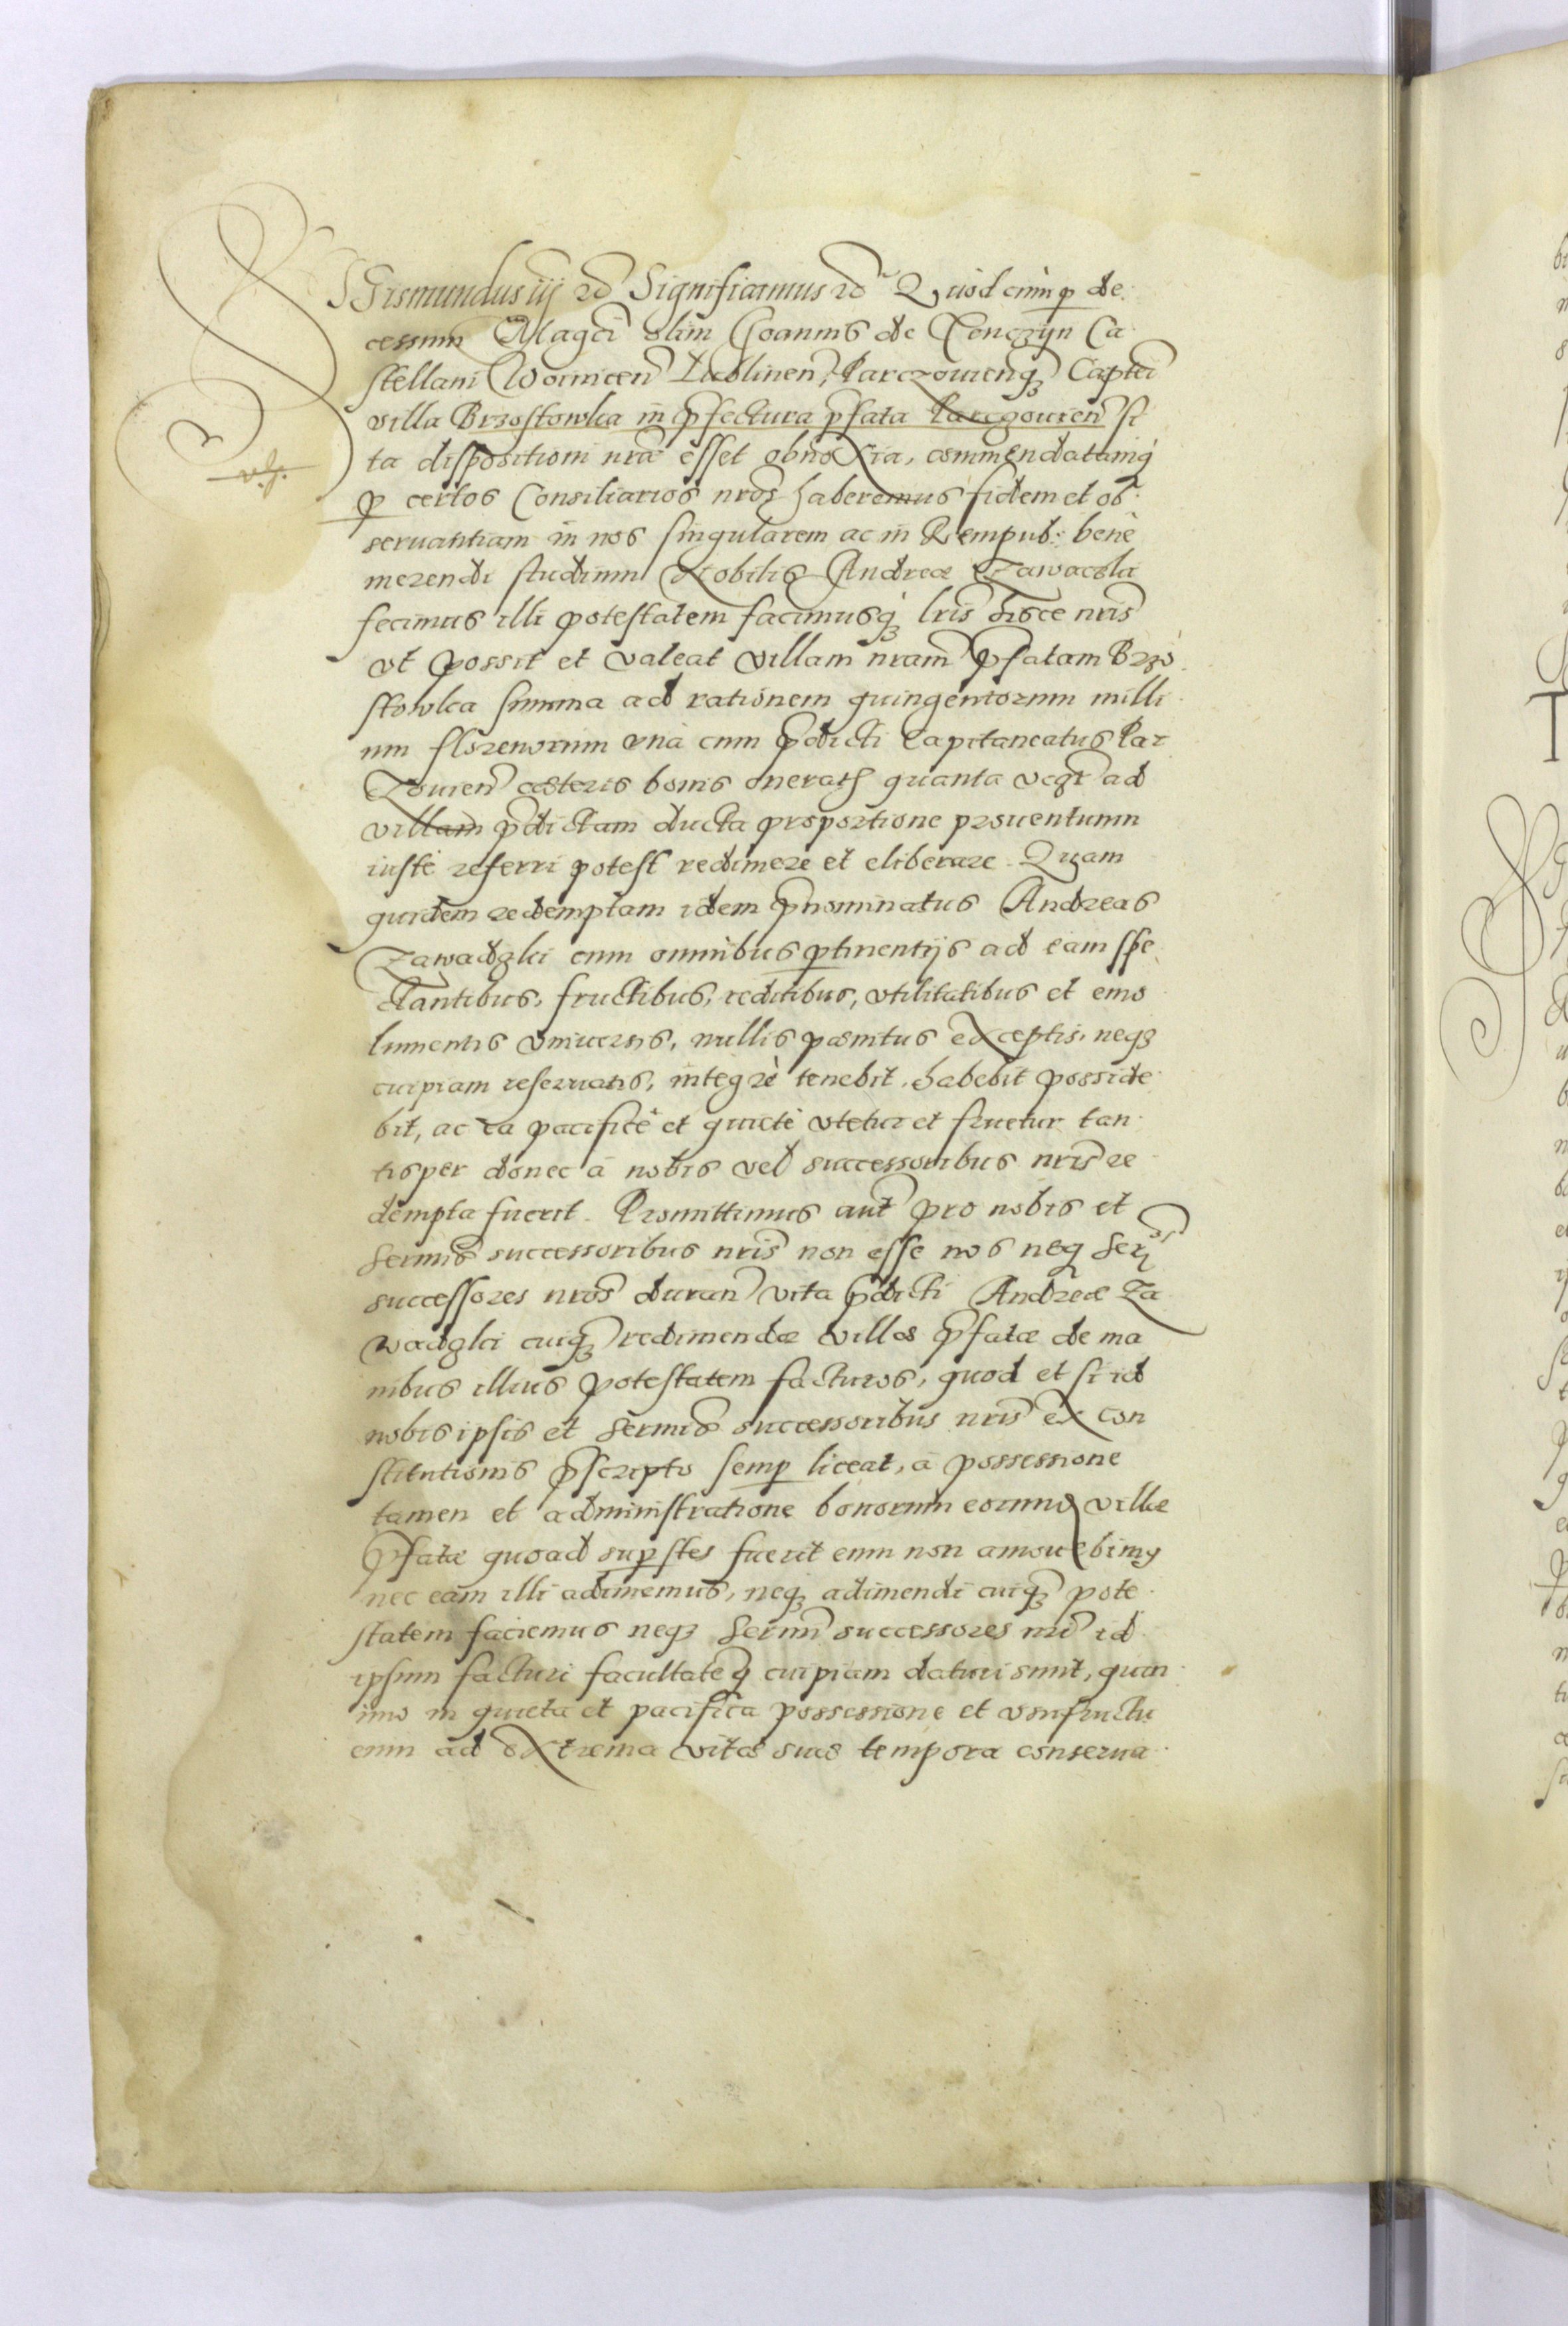 Sigismundus iij etc̃ Significamus etc̃ Quòd cùm p de
cessum Magci olim Joannis de Tenczyn Ca
stellani Woinicen̄ Lublinen̄, Parczouienq3 Captei
villa Brzostowka in p̄fectura p̄fata Parczouien̄ si
ta dispositioni nræ esset obnoxia, commendatamq́
p certos Consiliarios nros haberemus fidem et ob
seruantiam in nos singularem ac in Rempub: benè
merendi studium Nobilis Andreæ Zawaczki
fecimus illi potestatem facimusq́3 lris hisce nris
vt possit et valeat villam nram p̄fatam Brzo
stowka summa ad rationem quingentorum milli
um florenorum vnà cum p̄dicti Capitaneatus Par
Zouien̄ cæteris bonis onerath quanta vegr̄ ad
villam p̄dictam ducta proportione prouentuum
iustè referri potest redimere et eliberare. Quam
quidem redemptam idem p̄nominatus Andreas
Zawadzki cum omnibus ptinentijs ad eam spe
ctantibus, fructibus, reditibus, vtilitatibus et emo
lumentis vniuersis, nullis pænitus exceptis, neq3
cuipiam reseruatis, integrè tenebit, habebit posside
bit, ac ea pacificè et quietè vtetur et fruetur tan
tisper donec à nobis vel successoribus nris re
dempta fuerit. Promittimus aut̄ pro nobis et
Sermis successoribus nris non esse nos neq Ser
successores nros duran̄ vita p̄dicti Andreæ Za
wadzki cuiq3 redimendæ villæ p̄fatæ de ma
nibus illius potestatem facturos, quod et si id
nobis ipsis et Sermis successoribus nris ex con
stitutionis p̄scripto semp liceat, à possessione
tamen et administratione bonorum eorumq villæ
p̄fatæ quoad supstes fuerit eum non amouebimq
nec eam illi adimemus, neq3 adimendi cuiq3 pote
statem faciemus neq3 Sermi successores nri id
ipsum facturi facultateq́ cuipiam daturi sunt, quin
imo in quieta et pacifica possessione et vsufructu
eum ad extrema vitæ suæ tempora conserua